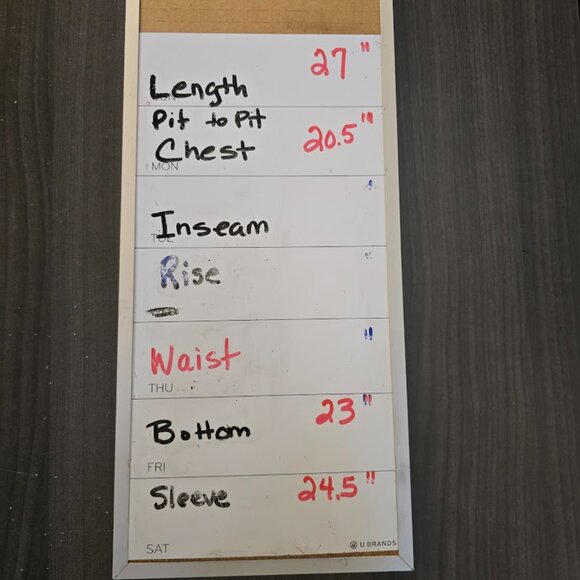 Length 27"
Pit to Pit
Chest 20.5"
MON
Inseam "
Rise "
Waist "
THU
Bottom 23"
FRI
Sleeve 24.5"
SAT
U BRANDS